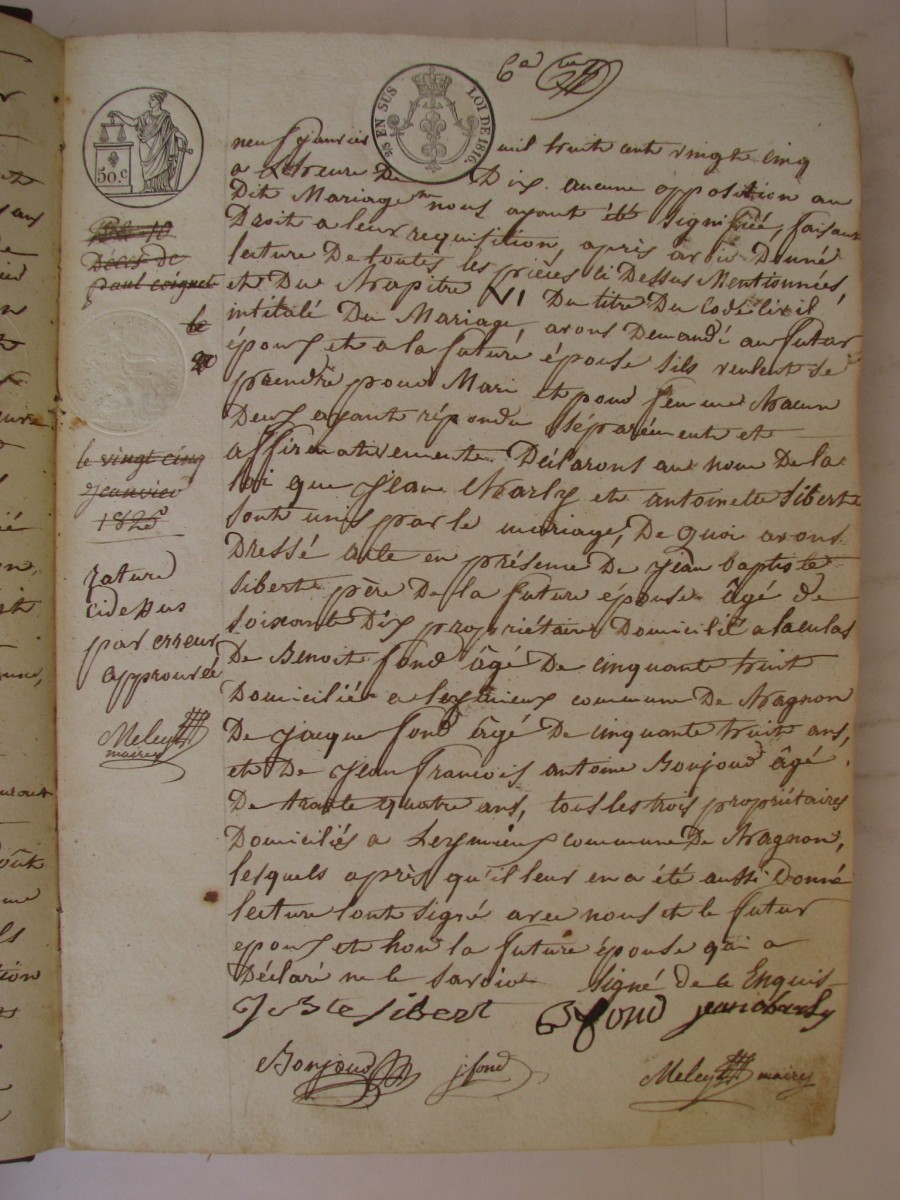 6e
25 EN SUS LOI DE 1816.
50.c
neuf janvier mil huit cent vingt cinq
a heure De Dix. aucune opposition au
Dit Mariage nous ayant été signifiée, faisant
Droit a leur requisition, après avoir Donné
lecture De toutes les pièces ci Dessus Mentionnées,
et Du Chapitre VI Du titre Du Code Civil
intitulé Du Mariage, avons Demandé au futur
époux et a la future épouse sils veulent se
prendre pour Mari et pour femme Chacun
Deux ayant répondu séparément et
affirmativement. Déclarons au nom De la
loi que Jean Charly et antoinette Sibert
sont unis par le mariage, De quoi avons
Dressé acte en présence De Jean Baptiste
Sibert père De la future épouse âgé de
soixante Dix propriétaire Domicilié a laculas
De Benoit fond âgé De cinquante huit
Domicilié a leymieux commune De Chagnon
De Jacque fond âgé De cinquante huit ans,
et De Jean francois antoine Bonjour âgé
De trante quatre ans, tous les trois propriétaires
Domiciliés a Leymieux commune De Chagnon,
lesquels après qu'il leur en a été aussi Donné
lecture l'ont signé avec nous et le futur
epoux et non la future épouse qui a
Déclaré ne le savoir signé de ce Enquis
J Bte Sibert B fond jean charly
Bonjour j. fond Meley maire
Décés de
paul coignet
le
le vingt cinq
Janvier
1825
rature
ci dessus
par erreur
approuvée
Meley
maire